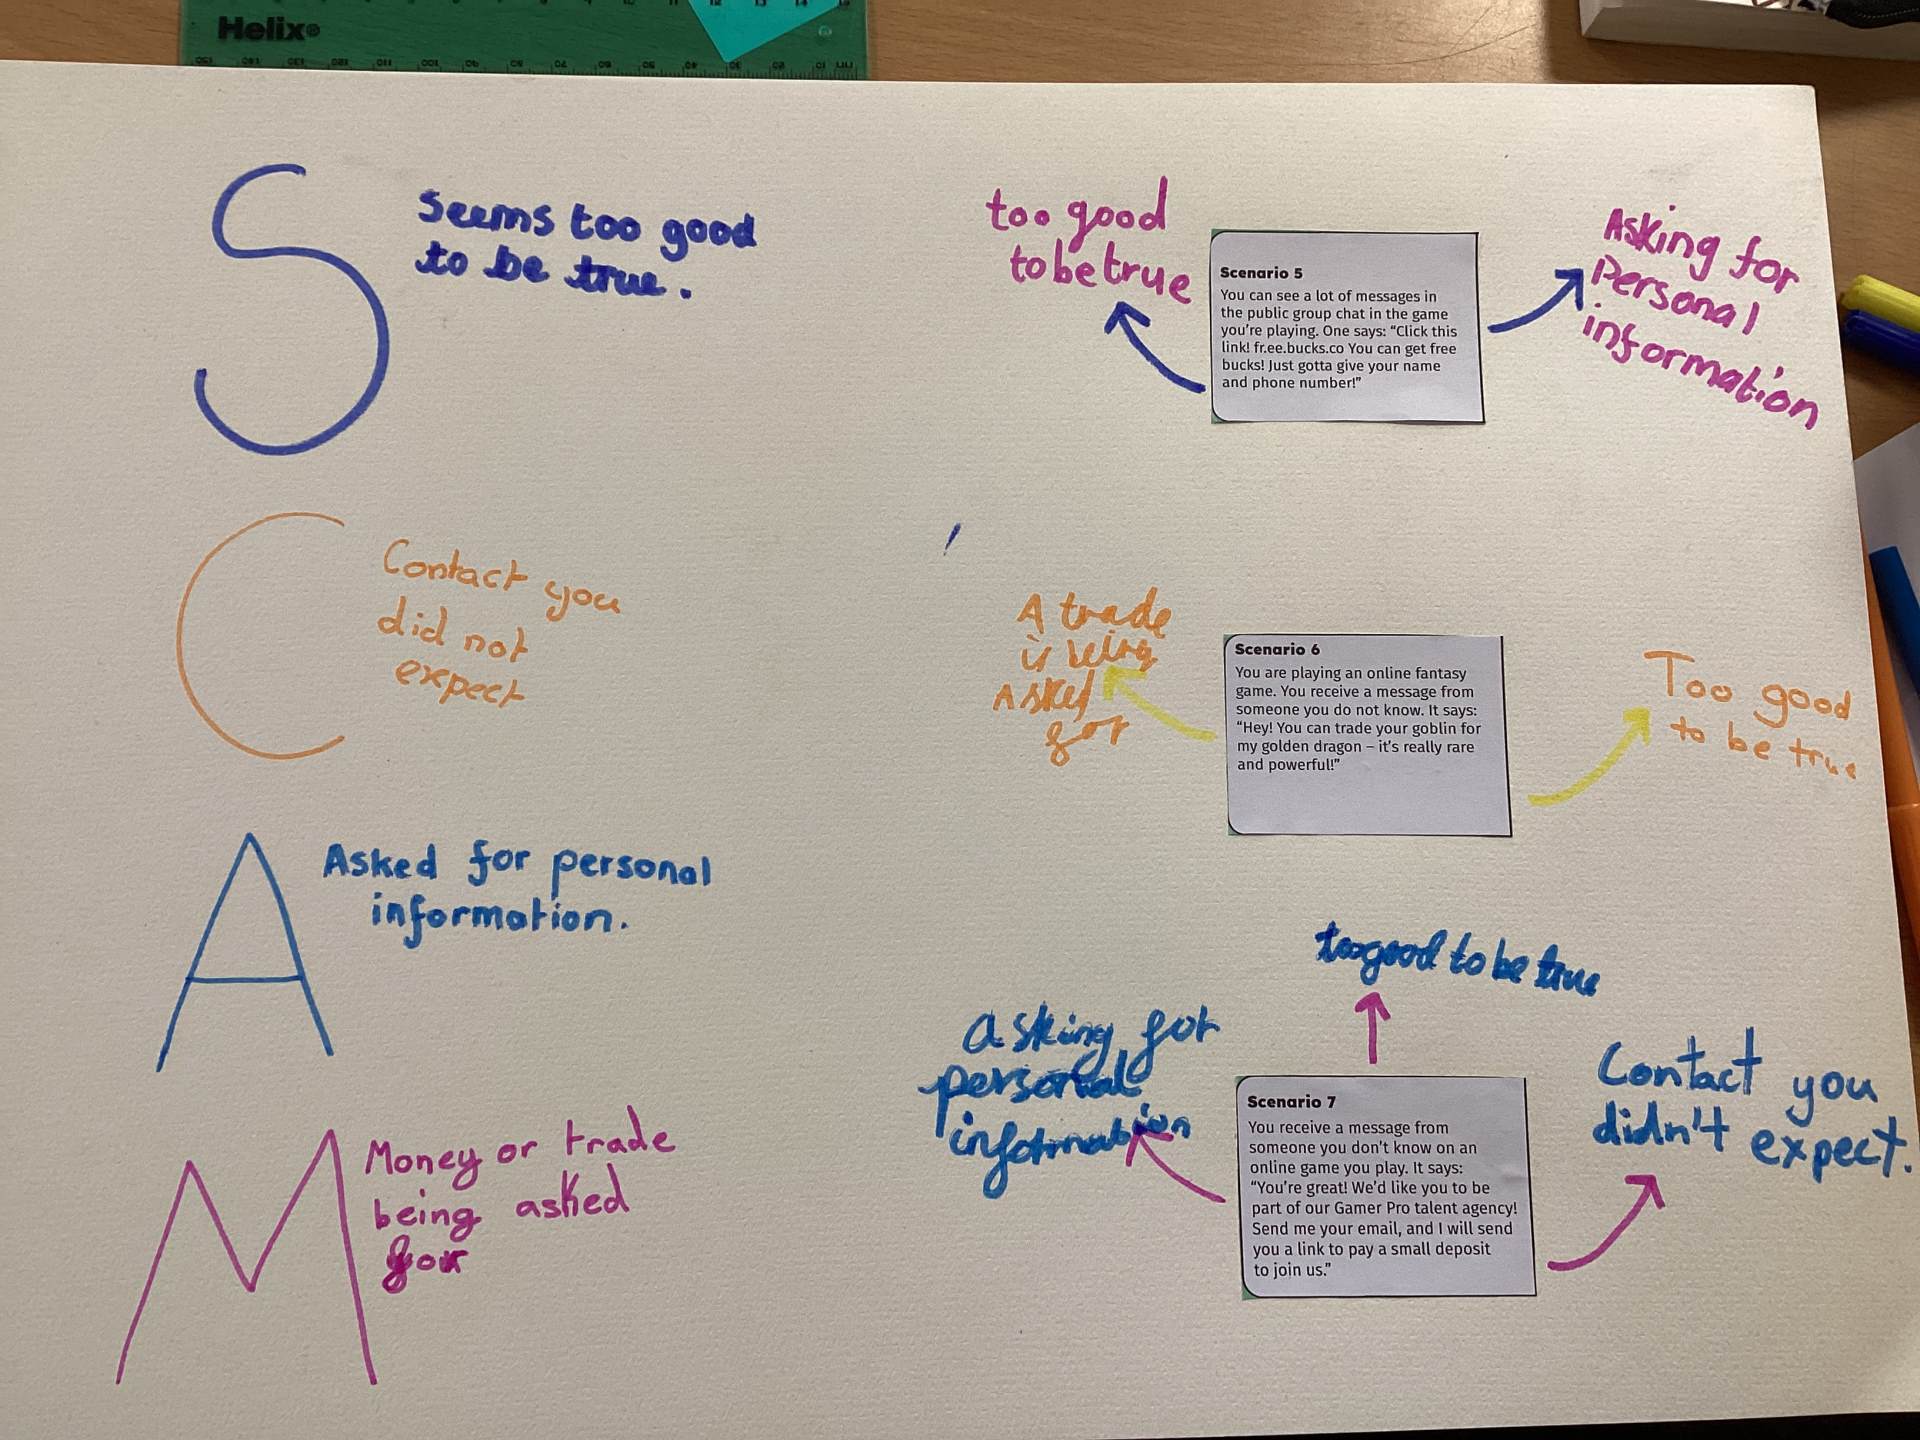 Helix®
S
Seems too good
to be true.
C
Contact you
did not
expect
A
Asked for personal
information.
M
Money or trade
being asked
for
too good
to be true
Scenario 5
You can see a lot of messages in
the public group chat in the game
you're playing. One says: "Click this
link! fr.ee.bucks.co You can get free
bucks! Just gotta give your name
and phone number!"
Asking for
Personal
information
A trade
is being
Asked
for
Scenario 6
You are playing an online fantasy
game. You receive a message from
someone you do not know. It says:
"Hey! You can trade your goblin for
my golden dragon – it's really rare
and powerful!"
Too good
to be true
too good to be true
asking for
personal
information
Scenario 7
You receive a message from
someone you don't know on an
online game you play. It says:
"You're great! We'd like you to be
part of our Gamer Pro talent agency!
Send me your email, and I will send
you a link to pay a small deposit
to join us."
Contact you
didn't expect.